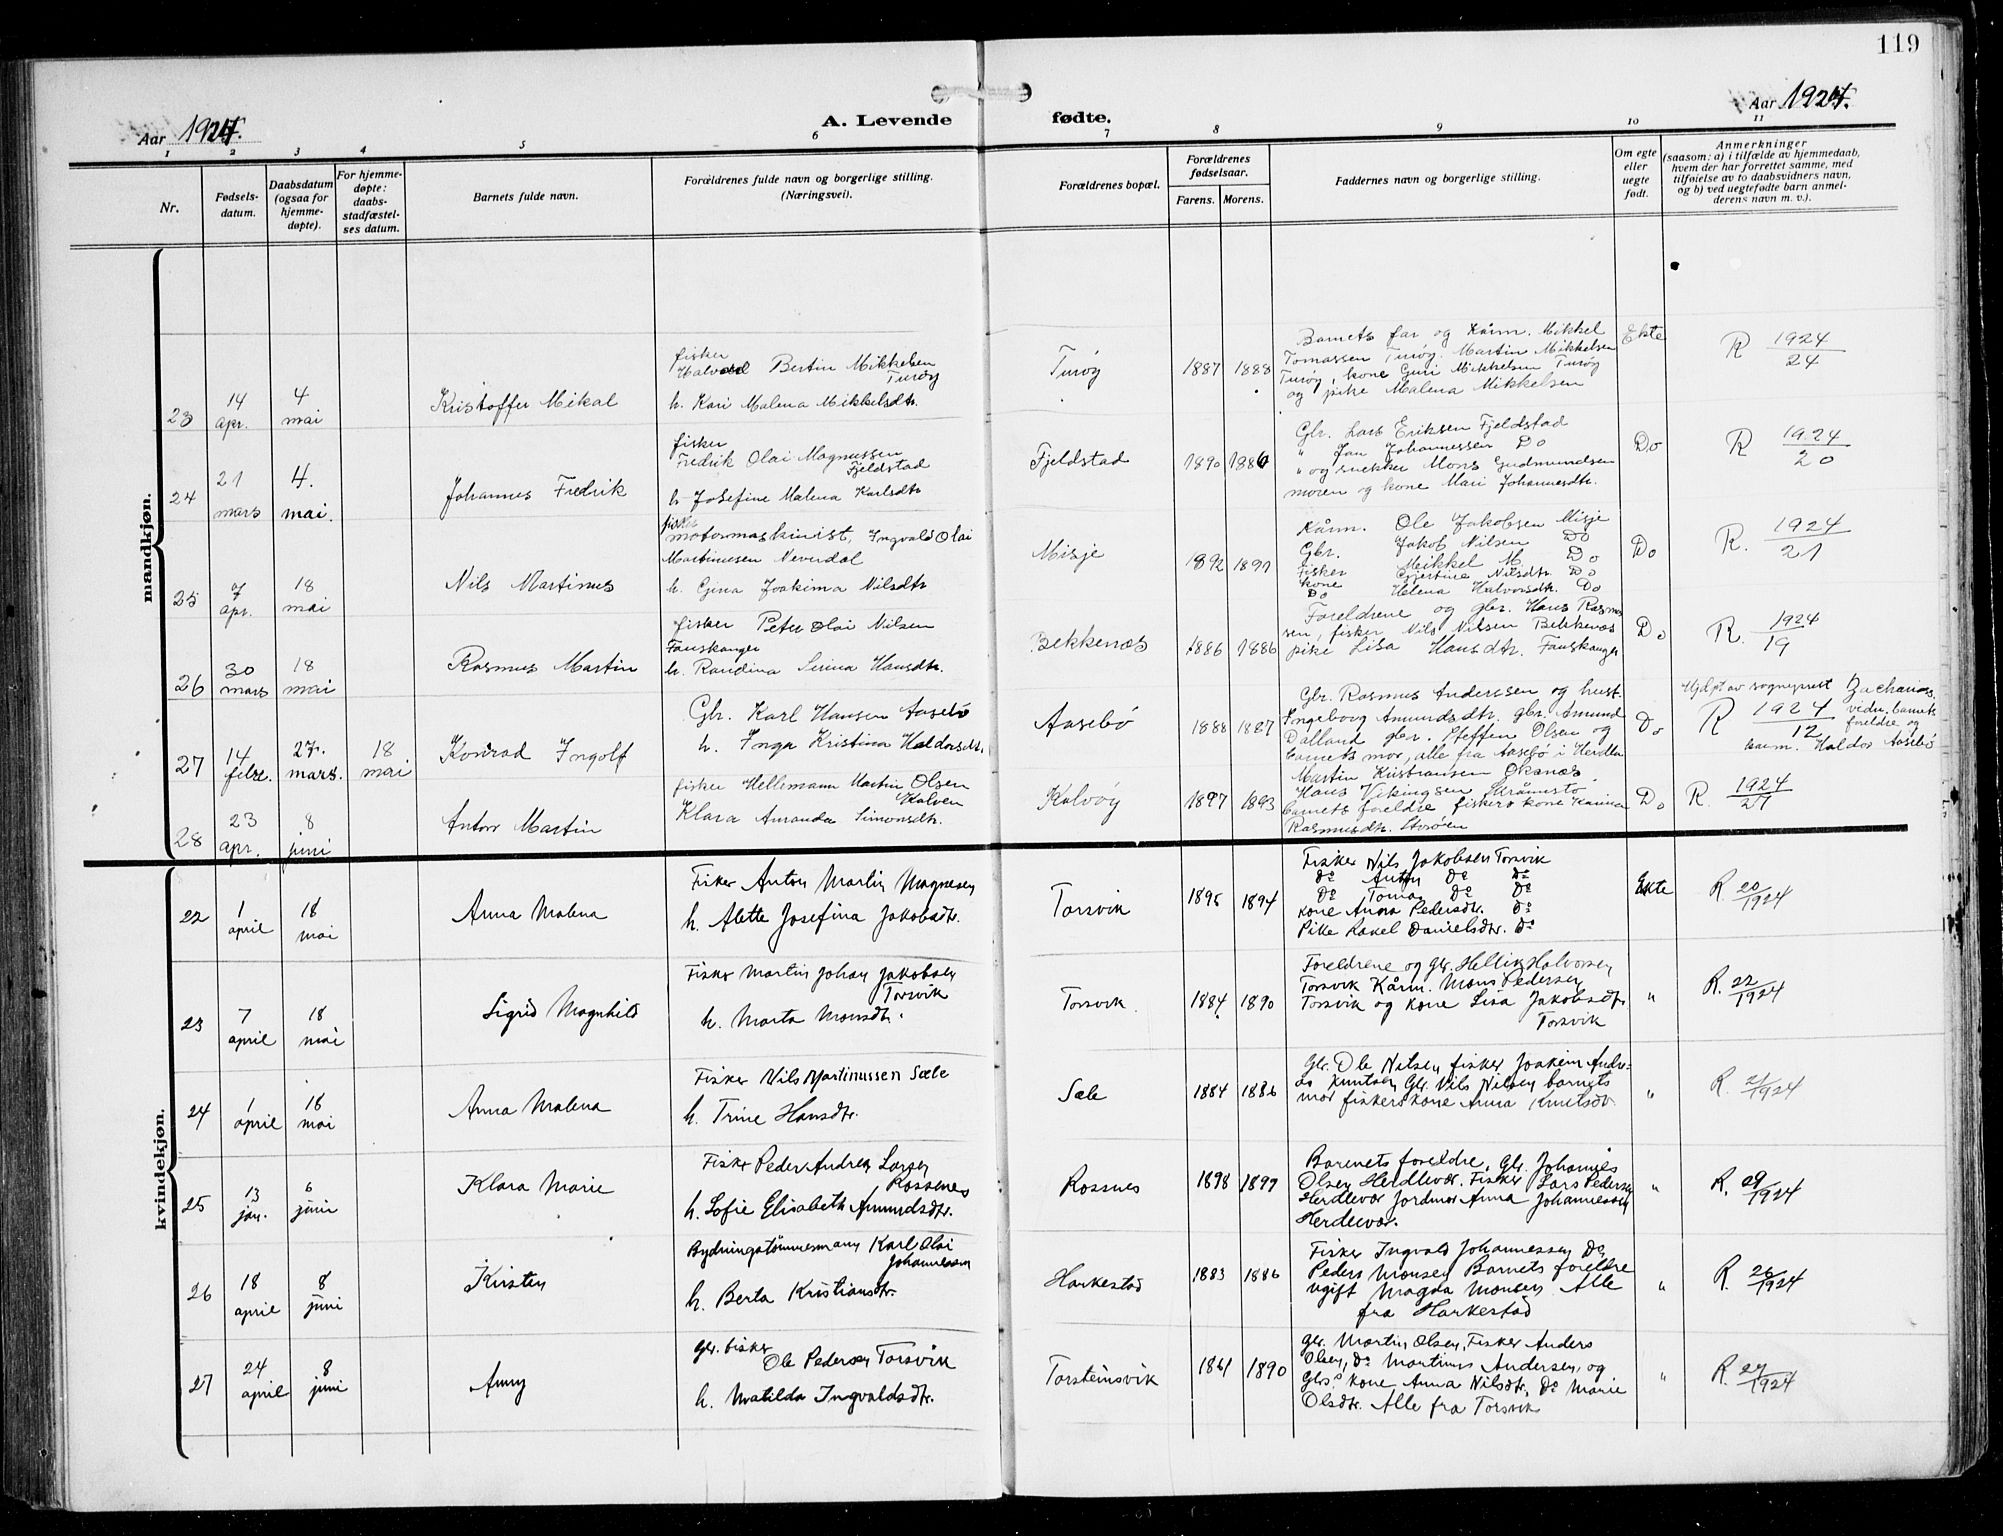 119
Aar 1924.
A. Levende fødte.
Aar 1924.
1 2 3 4 5 6 7 8 9 10 11
Nr.
Fødsels-
datum.
Daabsdatum
(ogsaa for
hjemme-
døpte).
For hjemme-
døpte:
daabs-
stadfæstel-
ses datum.
Barnets fulde navn.
Forældrenes fulde navn og borgerlige stilling.
(Næringsvei).
Forældrenes bopæl.
Forældrenes
fødselsaar.
Farens. Morens.
Faddernes navn og borgerlige stilling.
Om egte
eller
uegte
født.
Anmerkninger
(saasom: a) i tilfælde av hjemmedaab,
hvem der har forrettet samme, med
tilføielse av to daabsvidners navn,
og b) ved uegtefødte barn anmel-
derens navn m. v.).
mandkjøn.
23
14
apr.
4
mai
Kristoffer Mikal
fisker
Halvard Bertin Mikkelsen
Turøy
h. Kari Malena Mikkelsdtr.
Turøy
1887 1888
Barnets far og Kårm. Mikkel
Tomassen Turøy, Martin Mikkelsen
Turøy, kone Guri Mikkelsen Turøy
og pike Malena Mikkelsen
Ekte
R 1924/24
24
21
mars
4.
mai.
Johannes Fredrik
fisker
Fredrik Olai Magnussen
Fjeldstad
h. Josefine Malena Karlsdtr
Fjeldstad
1890 1886
Gbr. Lars Eriksen Fjeldstad
" Jan Johannessen Do
" og snekker Mons Gudmundsen
moren og kone Mari Johannesdtr.
Do
R 1924/20
25
7
apr.
18
mai
Nils Martinus
fisker
motormaskinist, Ingvald Olai
Martinusen Neverdal
h. Gjina Joakima Nilsdtr
Misje
1892 1891
Kårm. Ole Jakobsen Misje
Gbr. Jakob Nilsen Do
Fisker Mikkel M. Do
kone Gjertine Nilsdtr. Do
Do Helena Halvorsdtr. Do
Do
R. 1924/21
26
30
mars
18
mai
Rasmus Martin
fisker Peter Olai Nilsen
Fauskanger
h. Randina Serina Hansdtr.
Bekkenæs
1886 1886
Foreldrene og gbr. Hans Rasmus
sen, fisker Nils Nilsen Bekkenæs
pike Lisa Hansdtr. Fauskanger
Do
R. 1924/19
27
14
febr.
27.
mars.
18
mai
Konrad Ingolf
Gbr. Karl Hansen Aasebø
h. Inga Kristina Haldorsdtr.
Aasebø
1888 1887
Gbr. Rasmus Anderssen og hust.
Ingeborg Amundsdtr. gbr. Amund
Dalland gbr. Steffen Olsen og
barnets mor, alle fra Aasebø i Herdla
Do
Hjdpt av sogneprest Zacharias.
R 1924/12 vidn. barnets
foreldre og
Haldor Aasebø
28
23
apr.
8
juni
Anton Martin
fisker Hellemann Martin Olsen
Kalven
Klara Amanda Simonsdtr.
Kalvøy
1897 1893
Martin Kristiansen Oksnæs
Hans Vikingsen Straumsto
barnets foreldre fiskers kone Karina
Rasmusdtr. Storøen
Do
R. 1924/27
kvindekjøn.
22
1
april
18
mai
Anna Malena
Fisker Anton Martin Magnesen
h. Alette Josefina Jakobsdtr.
Torsvik
1895 1894
Fisker Nils Jakobsen Torsvik
Do Anton Do Do
Do Tomas Do Do
Kone Anna Pedersdtr. Do
Pike Rakel Danielsdtr. Do
Ekte
R. 20/1924
23
7
april
18
mai
Sigrid Magnhild
Fisker Martin Johan Jakobsen
Torsvik
h. Marta Monsdtr.
Torsvik
1884 1890
Foreldrene og gbr. Hellik Halvorsen
Torsvik Kårm. Mons Pedersen
Torsvik og kone Lisa Jakobsdtr.
Torsvik
"
R. 22/1924
24
1
april
18
mai
Anna Malena
Fisker Nils Martinussen Sæle
h. Trine Hansdtr.
Sæle
1884 1886
Gbr. Ole Nilsen fisker Joakim Andre-
as Knutsen Gbr. Nils Nilsen barnets
mor fiskers kone Anna Knutsdtr.
"
R. 21/1924
25
13
jan.
6
juni
Klara Marie
Fisker Peder Andreas Larsen
Rossenes
h. Sofie Elisabeth Amundsdtr.
Rossnes
1898 1897
Barnets foreldre, Gbr. Johannes
Olsen Herdlevær. Fisker Lars Pedersen
Herdlevær Jordmor Anna Johannessen
Herdlevær.
"
R. 29/1924
26
18
april
8
juni
Kirsten
Bygningstømmermann Karl Olai
Johannessen
h. Berta Kristiansdtr.
Harkestad
1883 1886
Fisker Ingvald Johannessen Do
Peder Monsen Barnets foreldre
Ugift Magda Monsen. Alle
fra Harkestad
"
R. 26/1924
27
24
april
8
juni
Anny
gbr. fisker
Ole Pedersen Torsvik
h. Matilda Ingvaldsdtr.
Torsteinsvik
1881 1890
gbr. Martin Olsen, Fisker Anders
Olsen, Do Martinus Andersen, og
Gbrs. Kone Anna Nilsdtr, Do Marie
Olsdtr. Alle fra Torsvik
"
R. 27/1924